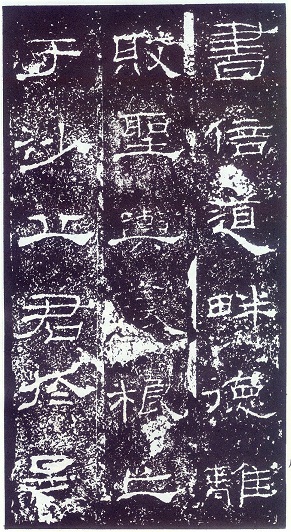 書倍道畔德離
敗聖輿食糧亡
于沙丘君於是